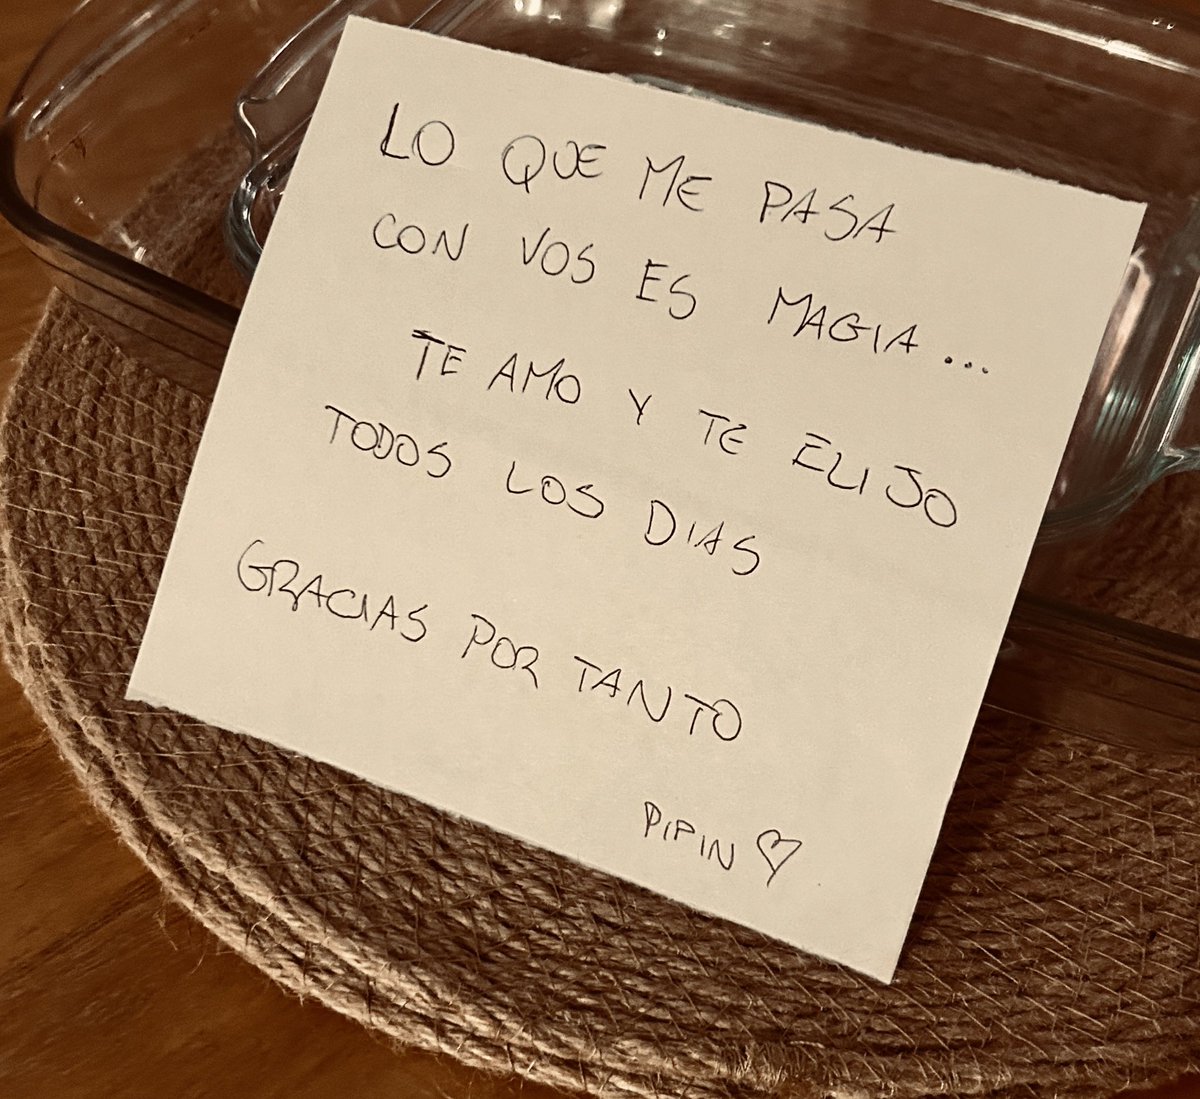 LO QUE ME PASA
CON VOS ES MAGIA...
TE AMO Y TE ELIJO
TODOS LOS DIAS
GRACIAS POR TANTO
PIPIN ♡